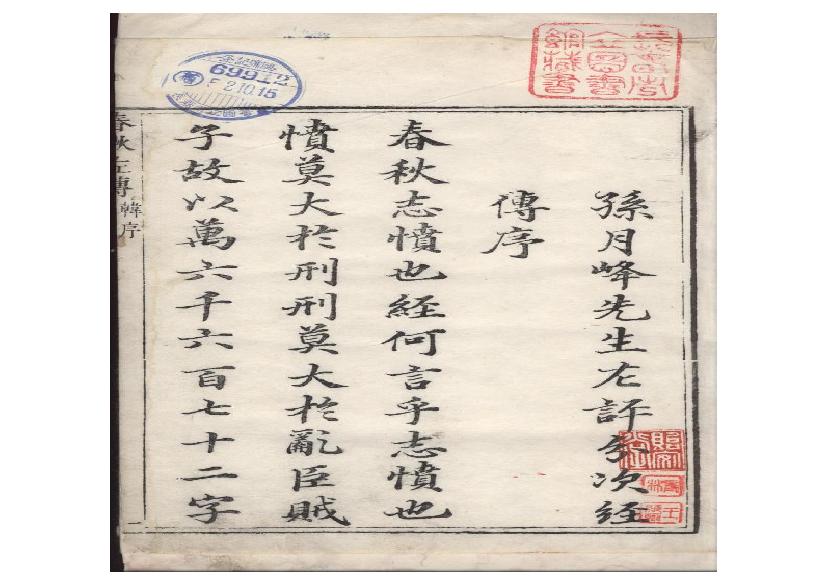 孫月峰先生左評分次經
傳序
春秋志憤也經何言乎志憤也
憤莫大於刑刑莫大於亂臣賊
子故以萬六千六百七十二字
春秋左傳 韓序
一
69942
52.10.15